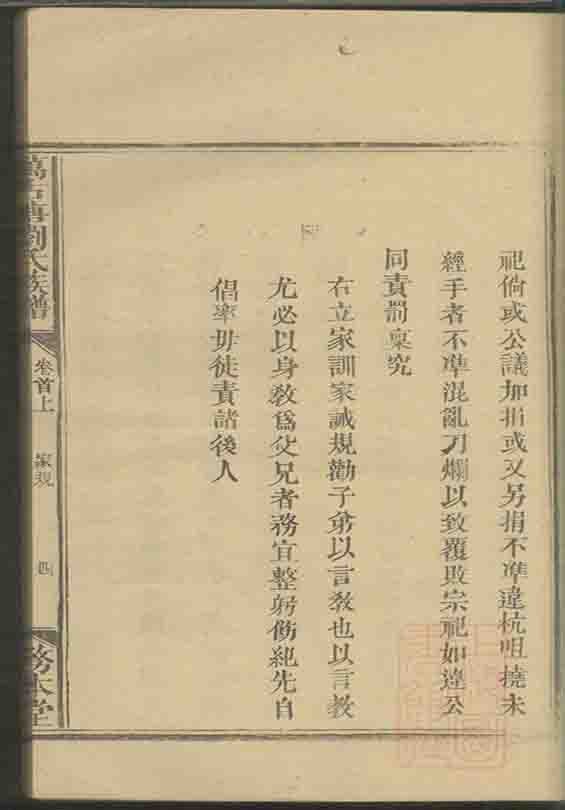 祀倘或公議加捐或又另捐不準違抗咀撓未
經手者不準混亂刀爛以致覆敗宗祀如違公
同責罰稟究
右立家訓家誡規勸子弟以言教也以言教
尤必以身教為父兄者務宜整躬飭紀先自
倡率毋徒責諸後人
萬石塘劉氏族譜
卷首上
家規
四
務本堂